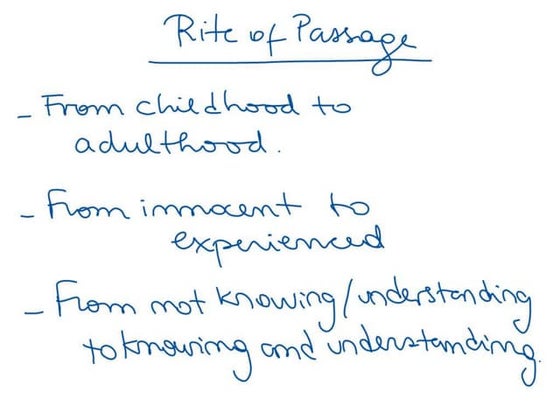 Rite of Passage
- From childhood to
adulthood.
- From innocent to
experienced
- From not knowing/understanding
to knowing and understanding.